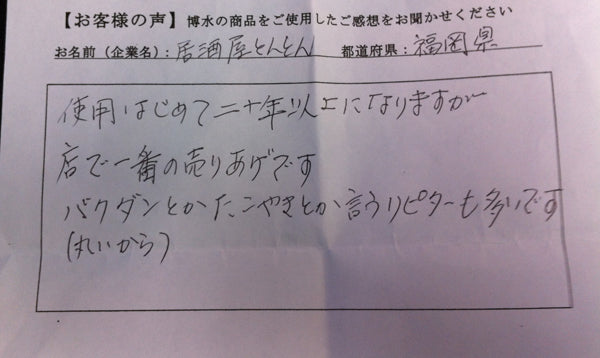 【お客様の声】博水の商品をご使用したご感想をお聞かせください
お名前（企業名）：居酒屋とんとん 都道府県：福岡県
使用はじめて二十年以上になりますが
店で一番の売りあげです
バクダンとかたこやきとか言うリピターも多いです
(丸いから)